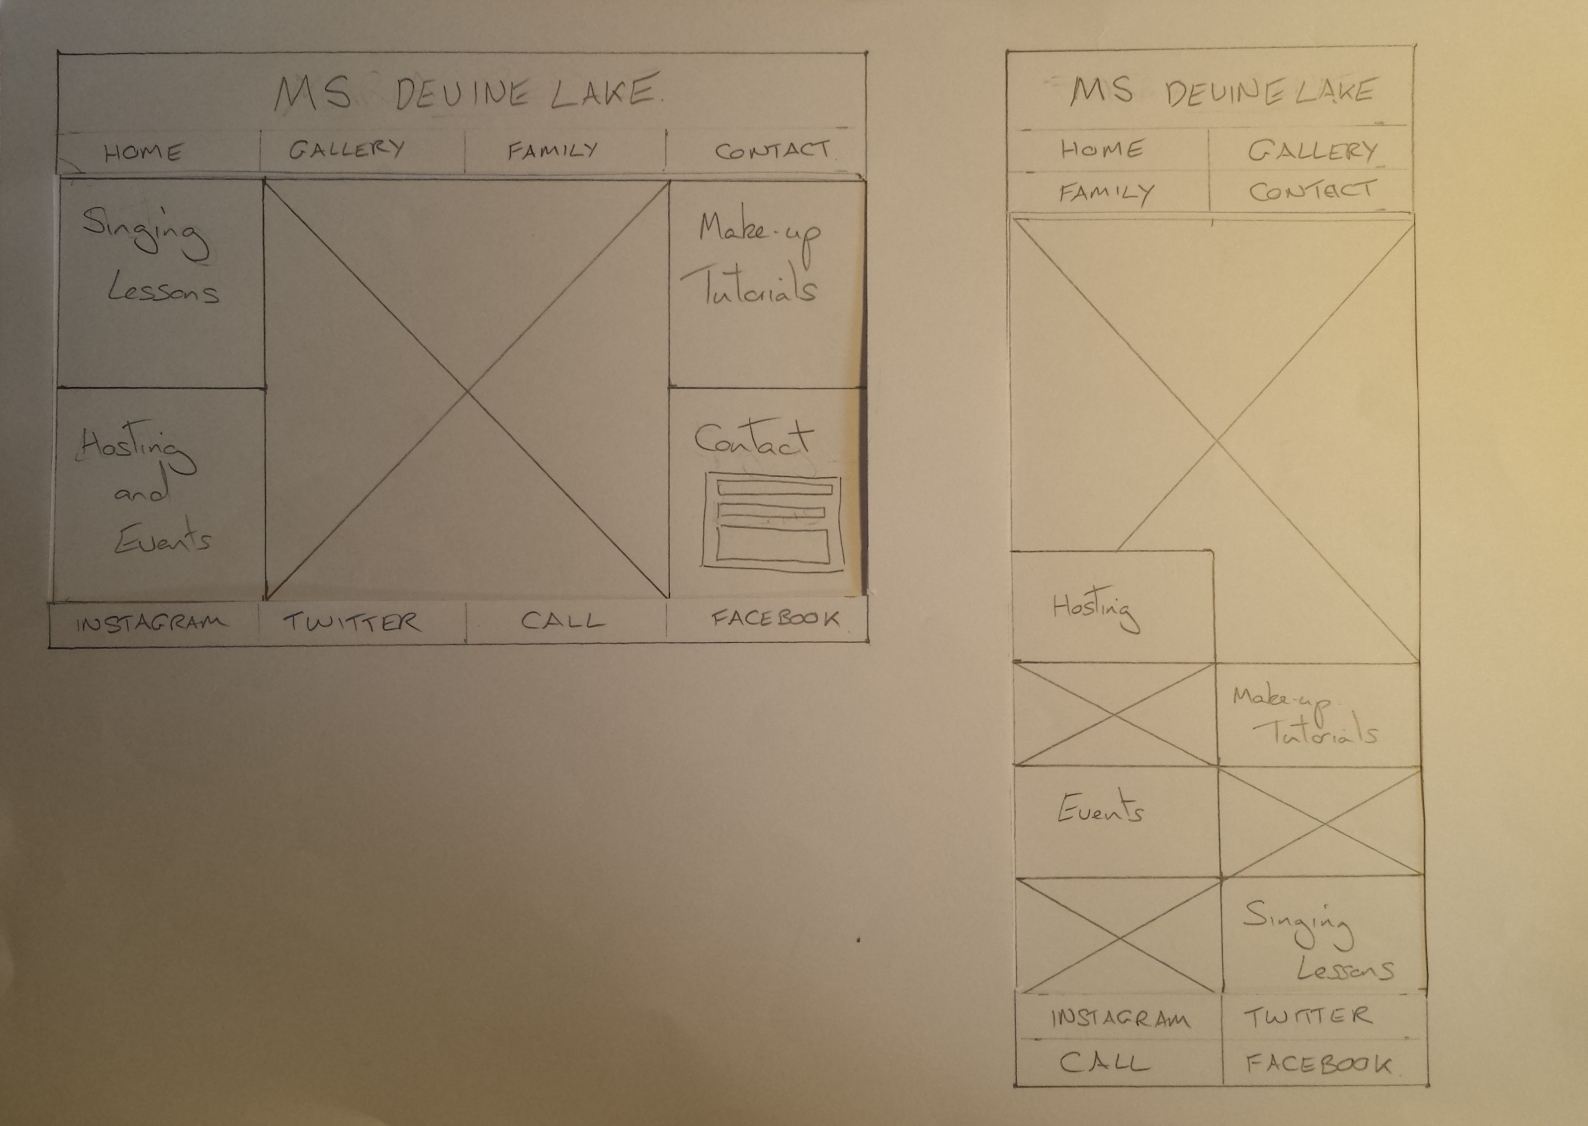 MS DEVINE LAKE.
HOME GALLERY FAMILY CONTACT
Singing
Lessons
Make-up
Tutorials
Hosting
and
Events
Contact
INSTAGRAM TWITTER CALL FACEBOOK
MS DEVINE LAKE
HOME GALLERY
FAMILY CONTACT
Hosting
Make-up
Tutorials
Events
Singing
Lessons
INSTAGRAM TWITTER
CALL FACEBOOK